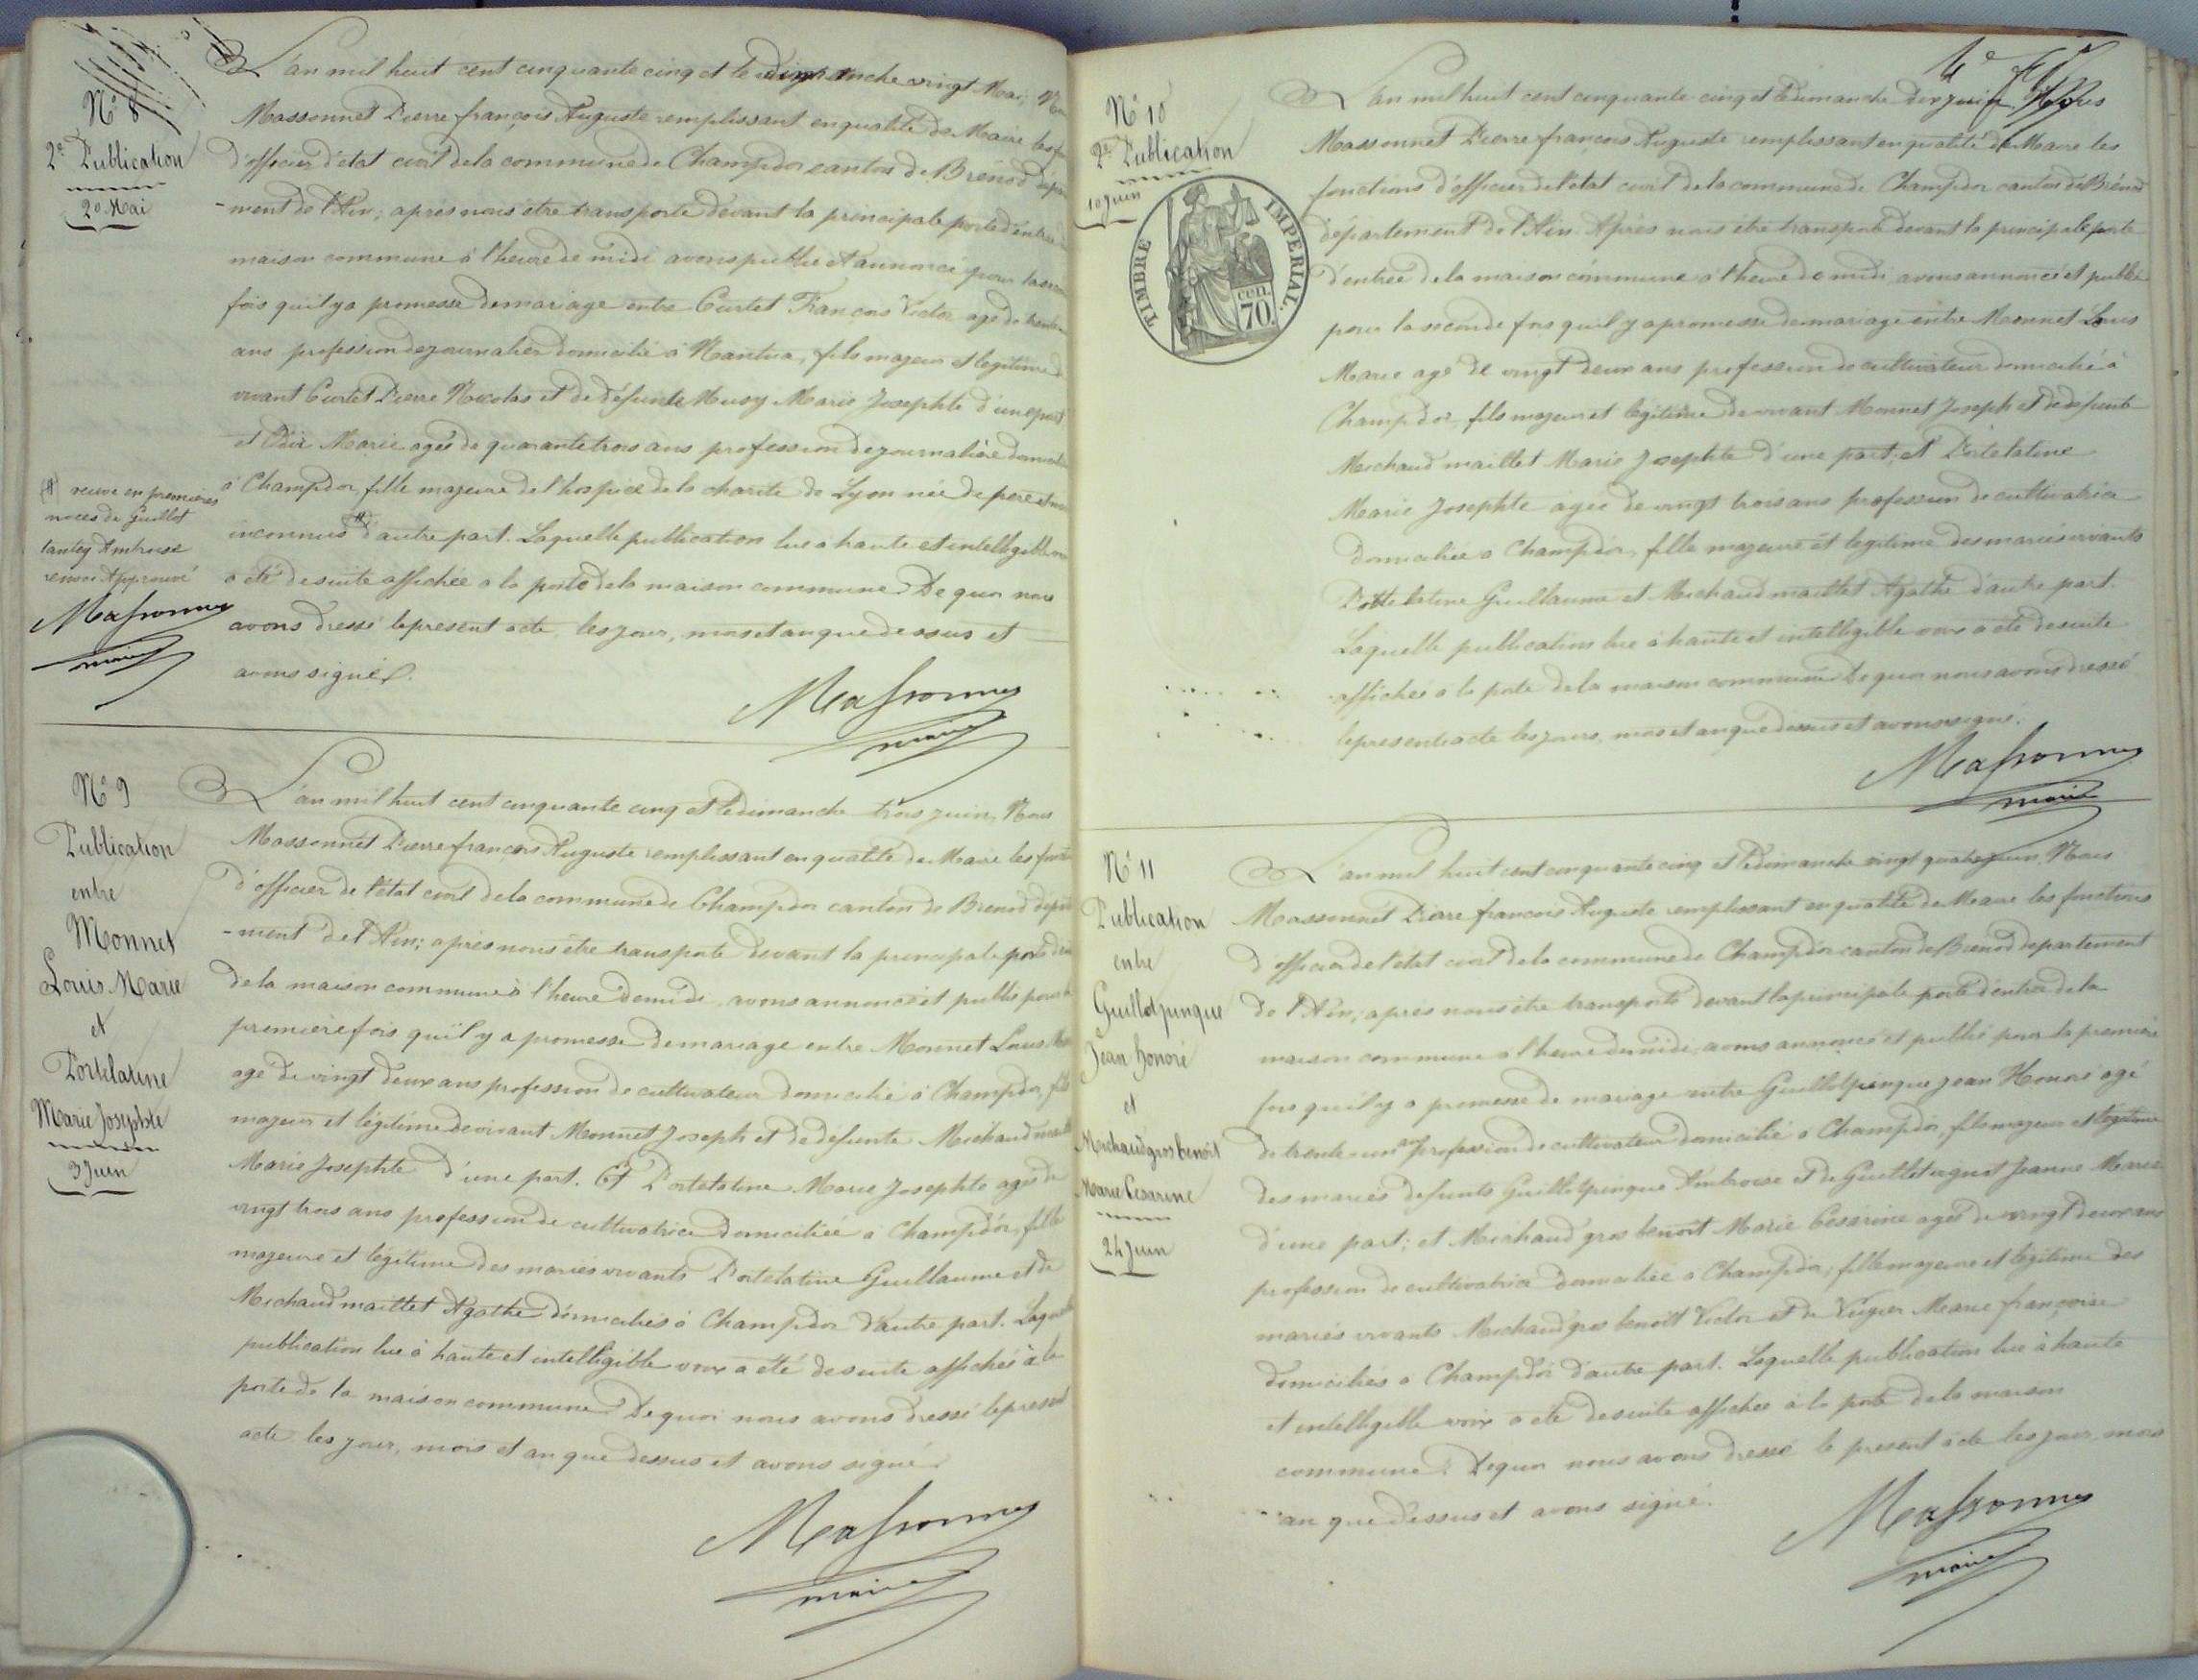 N° 8
2e Publication
20 Mai
L'an mil huit cent cinquante cinq et le dimanche vingt Mai, Nous
Massonnet Pierre françois Auguste remplissant en qualité de Maire les
d'officier d'état civil de la commune de Champdor canton de Brénod dépar
-ment de l'Ain; après nous être transporté devant la principale porte d'entrée
maison commune à l'heure de midi avons publié et annoncé pour la
fois qu'il y a promesse de mariage entre Curtet François Victor agé de
ans profession de journalier domicilié à Nantua, fils majeur et légitime de
vivant Curtet Pierre Nicolas et de défunte Musy Marie Josephte d'une part
et Marie agée de quarante trois ans profession de journalière
à Champdor, fille majeure de l'hospice de la charité de Lyon née de père et
inconnus (#) d'autre part. Laquelle publication lue à haute et intelligible
a été de suite affichée à la porte de la maison commune De quoi nous
avons dressé le présent acte, les jour, mois et an que dessus et
avons signé.
(#) veuve en premières
noces de Guillot
tantey Ambroise
renvoi Approuvé
Massonnet
maire
Massonnet
maire
N° 9
Publication
entre
Monnet
Louis Marie
et
Portelatine
Marie Josephte
3 Juin
L'an mil huit cent cinquante cinq et le dimanche trois juin, Nous
Massonnet Pierre françois Auguste remplissant en qualité de Maire les
d'officier de l'état civil de la commune de Champdor canton de Brenod
-ment de l'Ain; après nous être transporté devant la principale porte
de la maison commune à l'heure de midi, avons annoncé et publié pour la
première fois qu'il y a promesse de mariage entre Monnet Louis
agé de vingt deux ans profession de cultivateur domicilié à Champdor, fils
majeur et légitime de vivant Monnet Joseph et de défunte Michaud
Marie Josephte d'une part. Et Portelatine Marie Josephte agée de
vingt trois ans profession de cultivatrice domiciliée à Champdor, fille
majeure et légitime des mariés vivants Portelatine Guillaume et de
Michaud maillet Agathe domiciliés à Champdor d'autre part. Laquelle
publication lue à haute et intelligible voix a été de suite affichée à la
porte de la maison commune De quoi nous avons dressé le présent
acte les jour, mois et an que dessus et avons signé.
Massonnet
maire
N° 10
2e Publication
10 juin
TIMBRE IMPERIAL
70 cen.
L'an mil huit cent cinquante cinq et le dimanche dix juin, Nous
Massonnet Pierre francois Auguste remplissant en qualité de Maire les
fonctions d'officier de l'état civil de la commune de Champdor canton de Brénod
département de l'Ain Après nous être transporté devant la principale porte
d'entrée de la maison commune à l'heure de midi avons annoncé et publié
pour la seconde fois qu'il y a promesse de mariage entre Monnet Louis
Marie agé de vingt deux ans profession de cultivateur domicilié à
Champdor, fils majeur et légitime de vivant Monnet Joseph et de defunte
Michaud maillet Marie Josephte d'une part; et Portelatine
Marie Josephte agée de vingt trois ans profession de cultivatrice
domiciliée à Champdor, fille majeure et legitime des mariés vivants
Portelatine Guillaume et Michaud maillet Agathe d'autre part.
Laquelle publication lue à haute et intelligible voix a été de suite
affichée à la porte de la maison commune De quoi nous avons dressé
le present acte les jours, mois et an que dessus et avons signé.
Massonnet
maire
N° 11
Publication
entre
Guillot junque
Jean honoré
et
Michaud gros benoit
Marie Cesarine
24 Juin
L'an mil huit cent cinquante cinq et le dimanche vingt quatre juin, Nous
Massonnet Pierre françois Auguste remplissant en qualité de Maire les fonctions
d'officier de l'état civil de la commune de Champdor canton de Brenod departement
de l'Ain, après nous être transporté devant la principale porte d'entrée de la
maison commune à l'heure de midi, avons annoncé et publié pour la première
fois qu'il y a promesse de mariage entre Guillot jean Honoré agé
de trente un ans profession de cultivateur domicilié à Champdor, fils majeur et légitime
des mariés defunts Guillot Ambroise et de Guillot Jeanne Marie
d'une part; et Michaud gros benoît Marie Cesarine agée de vingt deux ans
profession de cultivatrice domiciliée à Champdor, fille majeure et légitime des
mariés vivants Michaud gros benoît Victor et de Marie françoise
domiciliés à Champdor d'autre part. Laquelle publication lue à haute
et intelligible voix a été de suite affichée à la porte de la maison
commune. De quoi nous avons dressé le present acte les jour, mois
an que dessus et avons signé.
Massonnet
maire